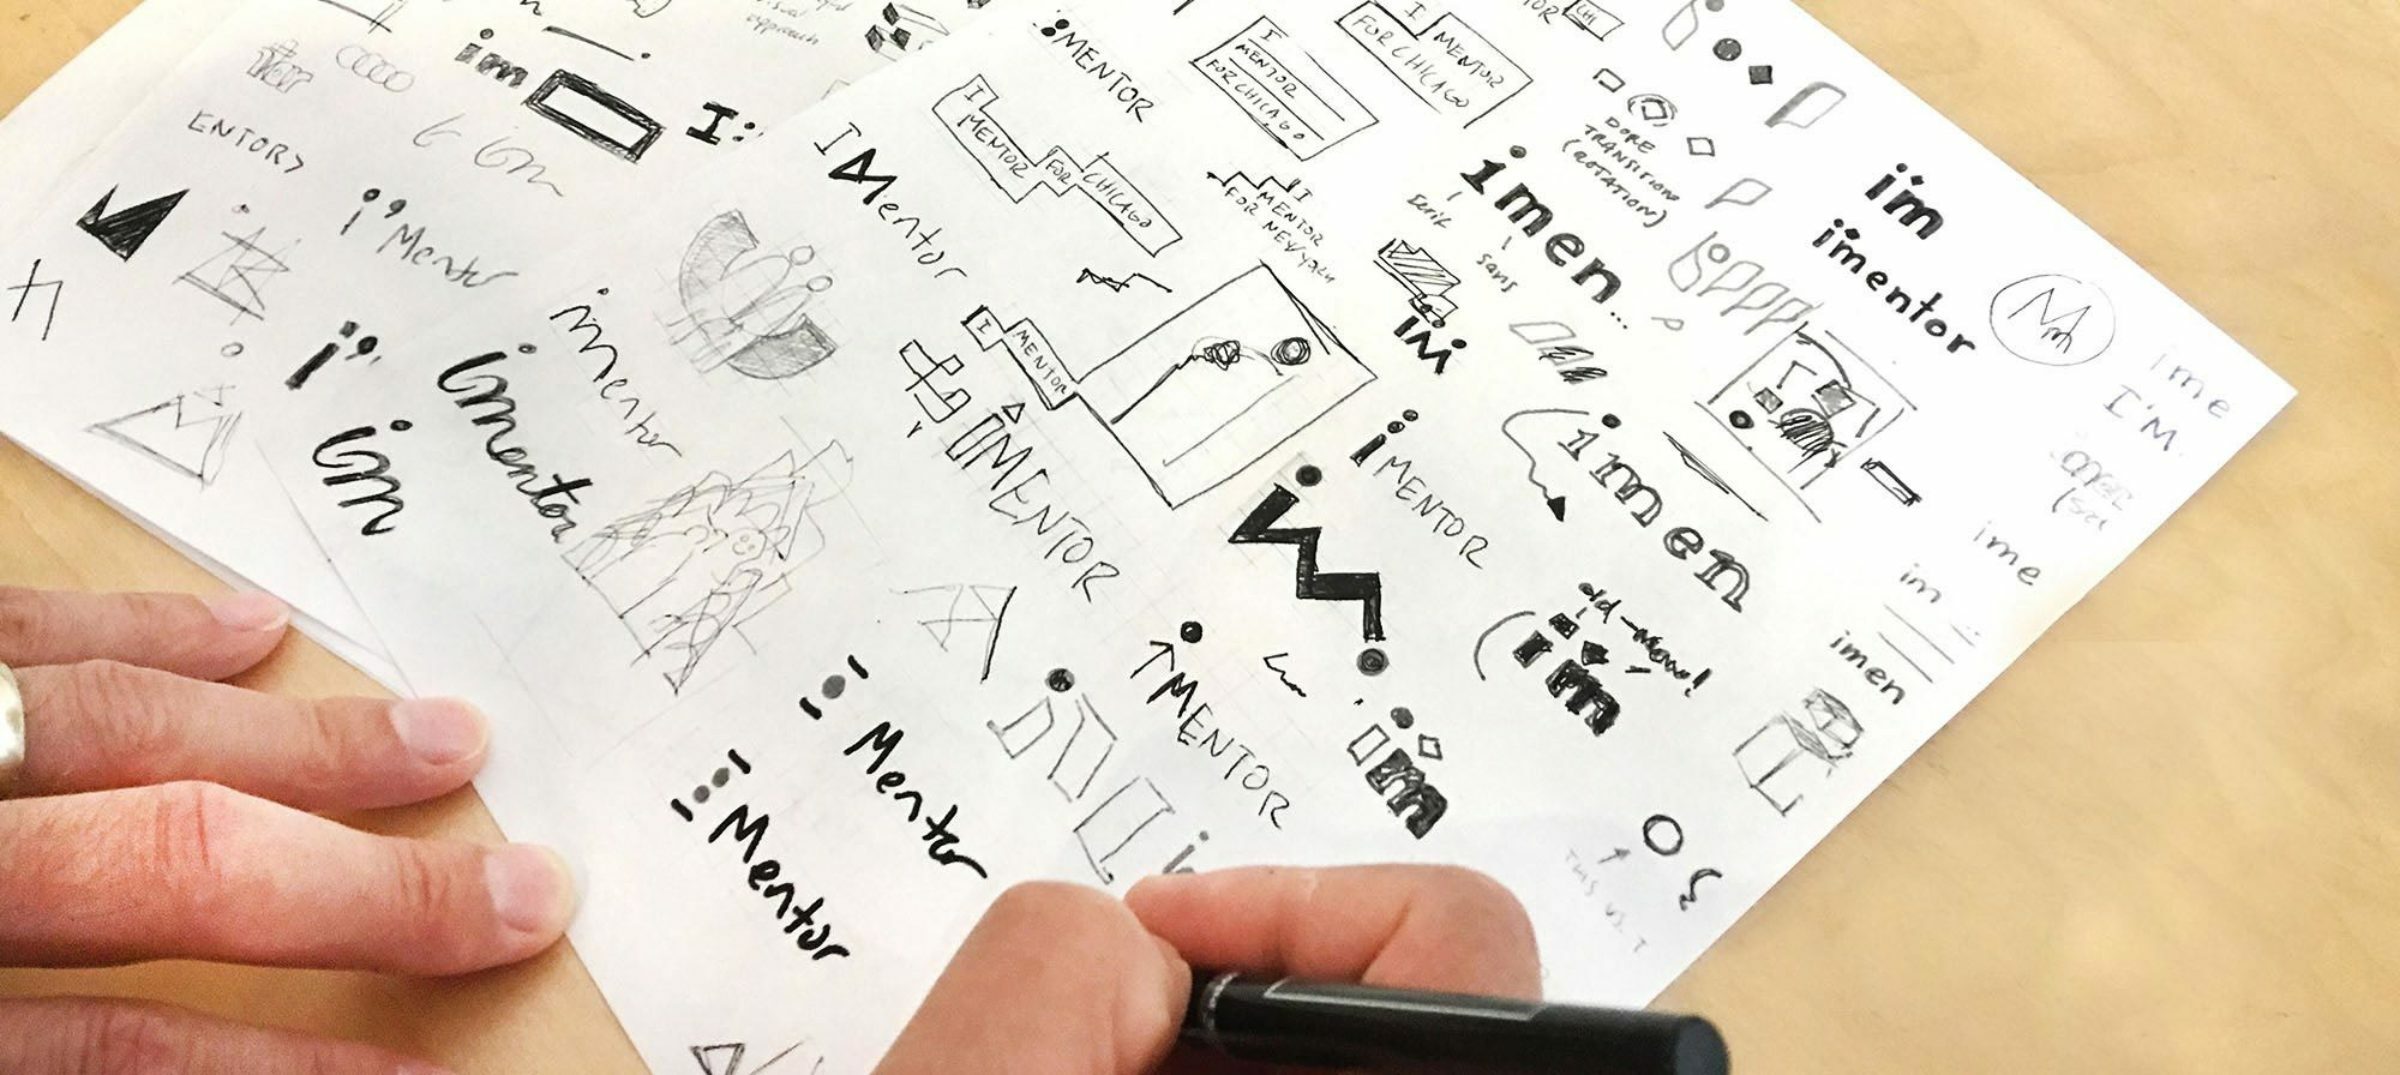 approach
im
I:
ENTOR
im
i'Mentor
imentor
imentor
im
iMENTOR
I
MENTOR
FOR
CHICAGO
I Mentor
I
MENTOR
FOR CHICAGO
I
MENTOR
FOR CHICAGO
CHI
I
MENTOR
FOR NEW YORK
I
MENTOR
iMENTOR
Mentor
Mentor
iMENTOR
iMENTOR
im
im
imen...
Serif
sans
imen
DORE
TRANSITION
(ROTATION)
im
imentor
M
ime
I'M.
ime
im
imen
old-new!
im
im
THIS VS. T